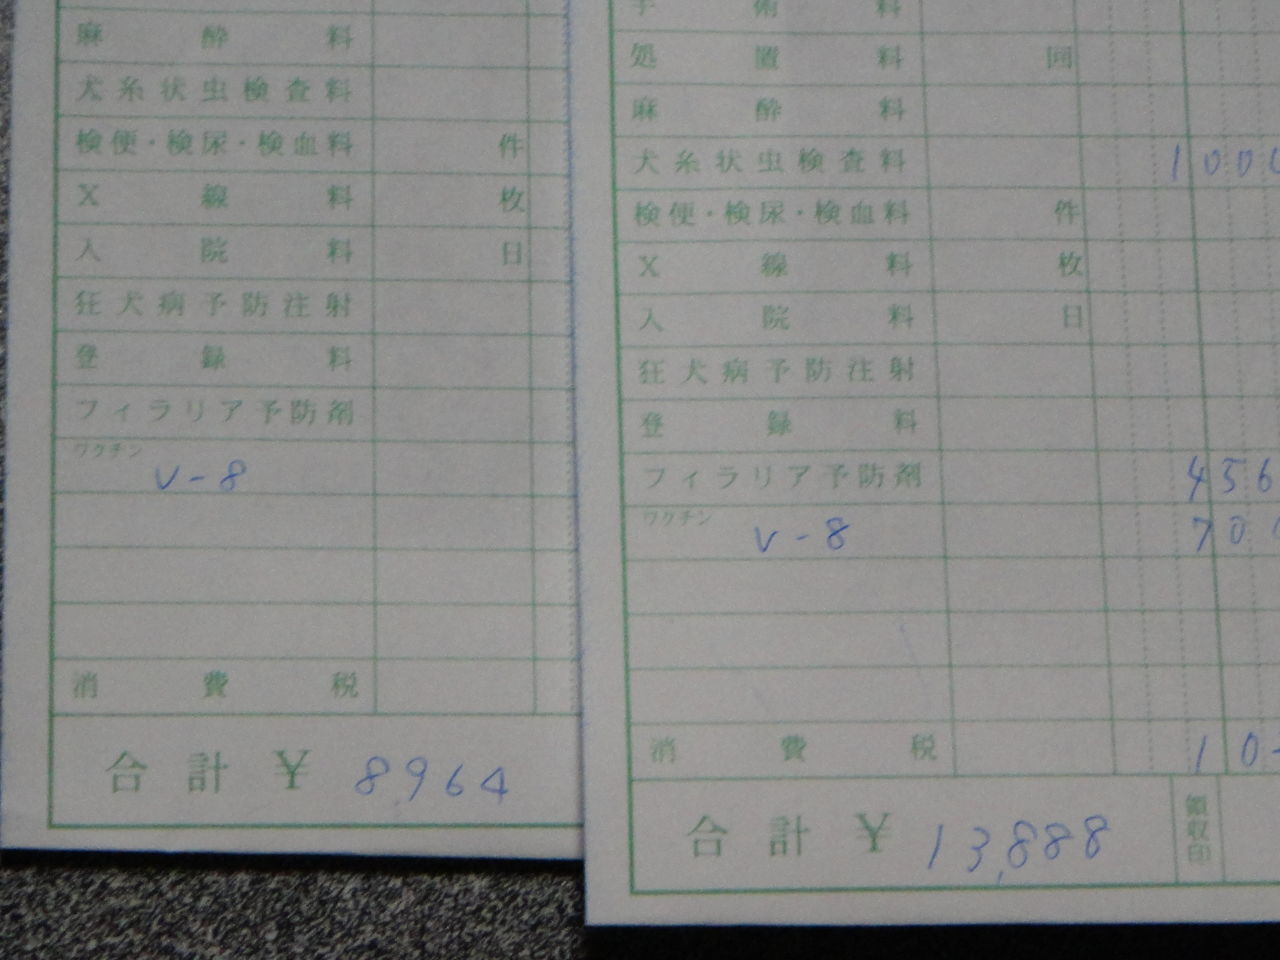 麻酔料
犬糸状虫検査料
検便・検尿・検血料 件
X線料 枚
入院料 日
狂犬病予防注射
登録料
フィラリア予防剤
ワクチン V-8
消費税
合計¥ 8964
手術料
処置料 回
麻酔料
犬糸状虫検査料 100
検便・検尿・検血料 件
X線料 枚
入院料 日
狂犬病予防注射
登録料
フィラリア予防剤 456
ワクチン V-8 70
消費税 10
合計¥ 13,888 領収印